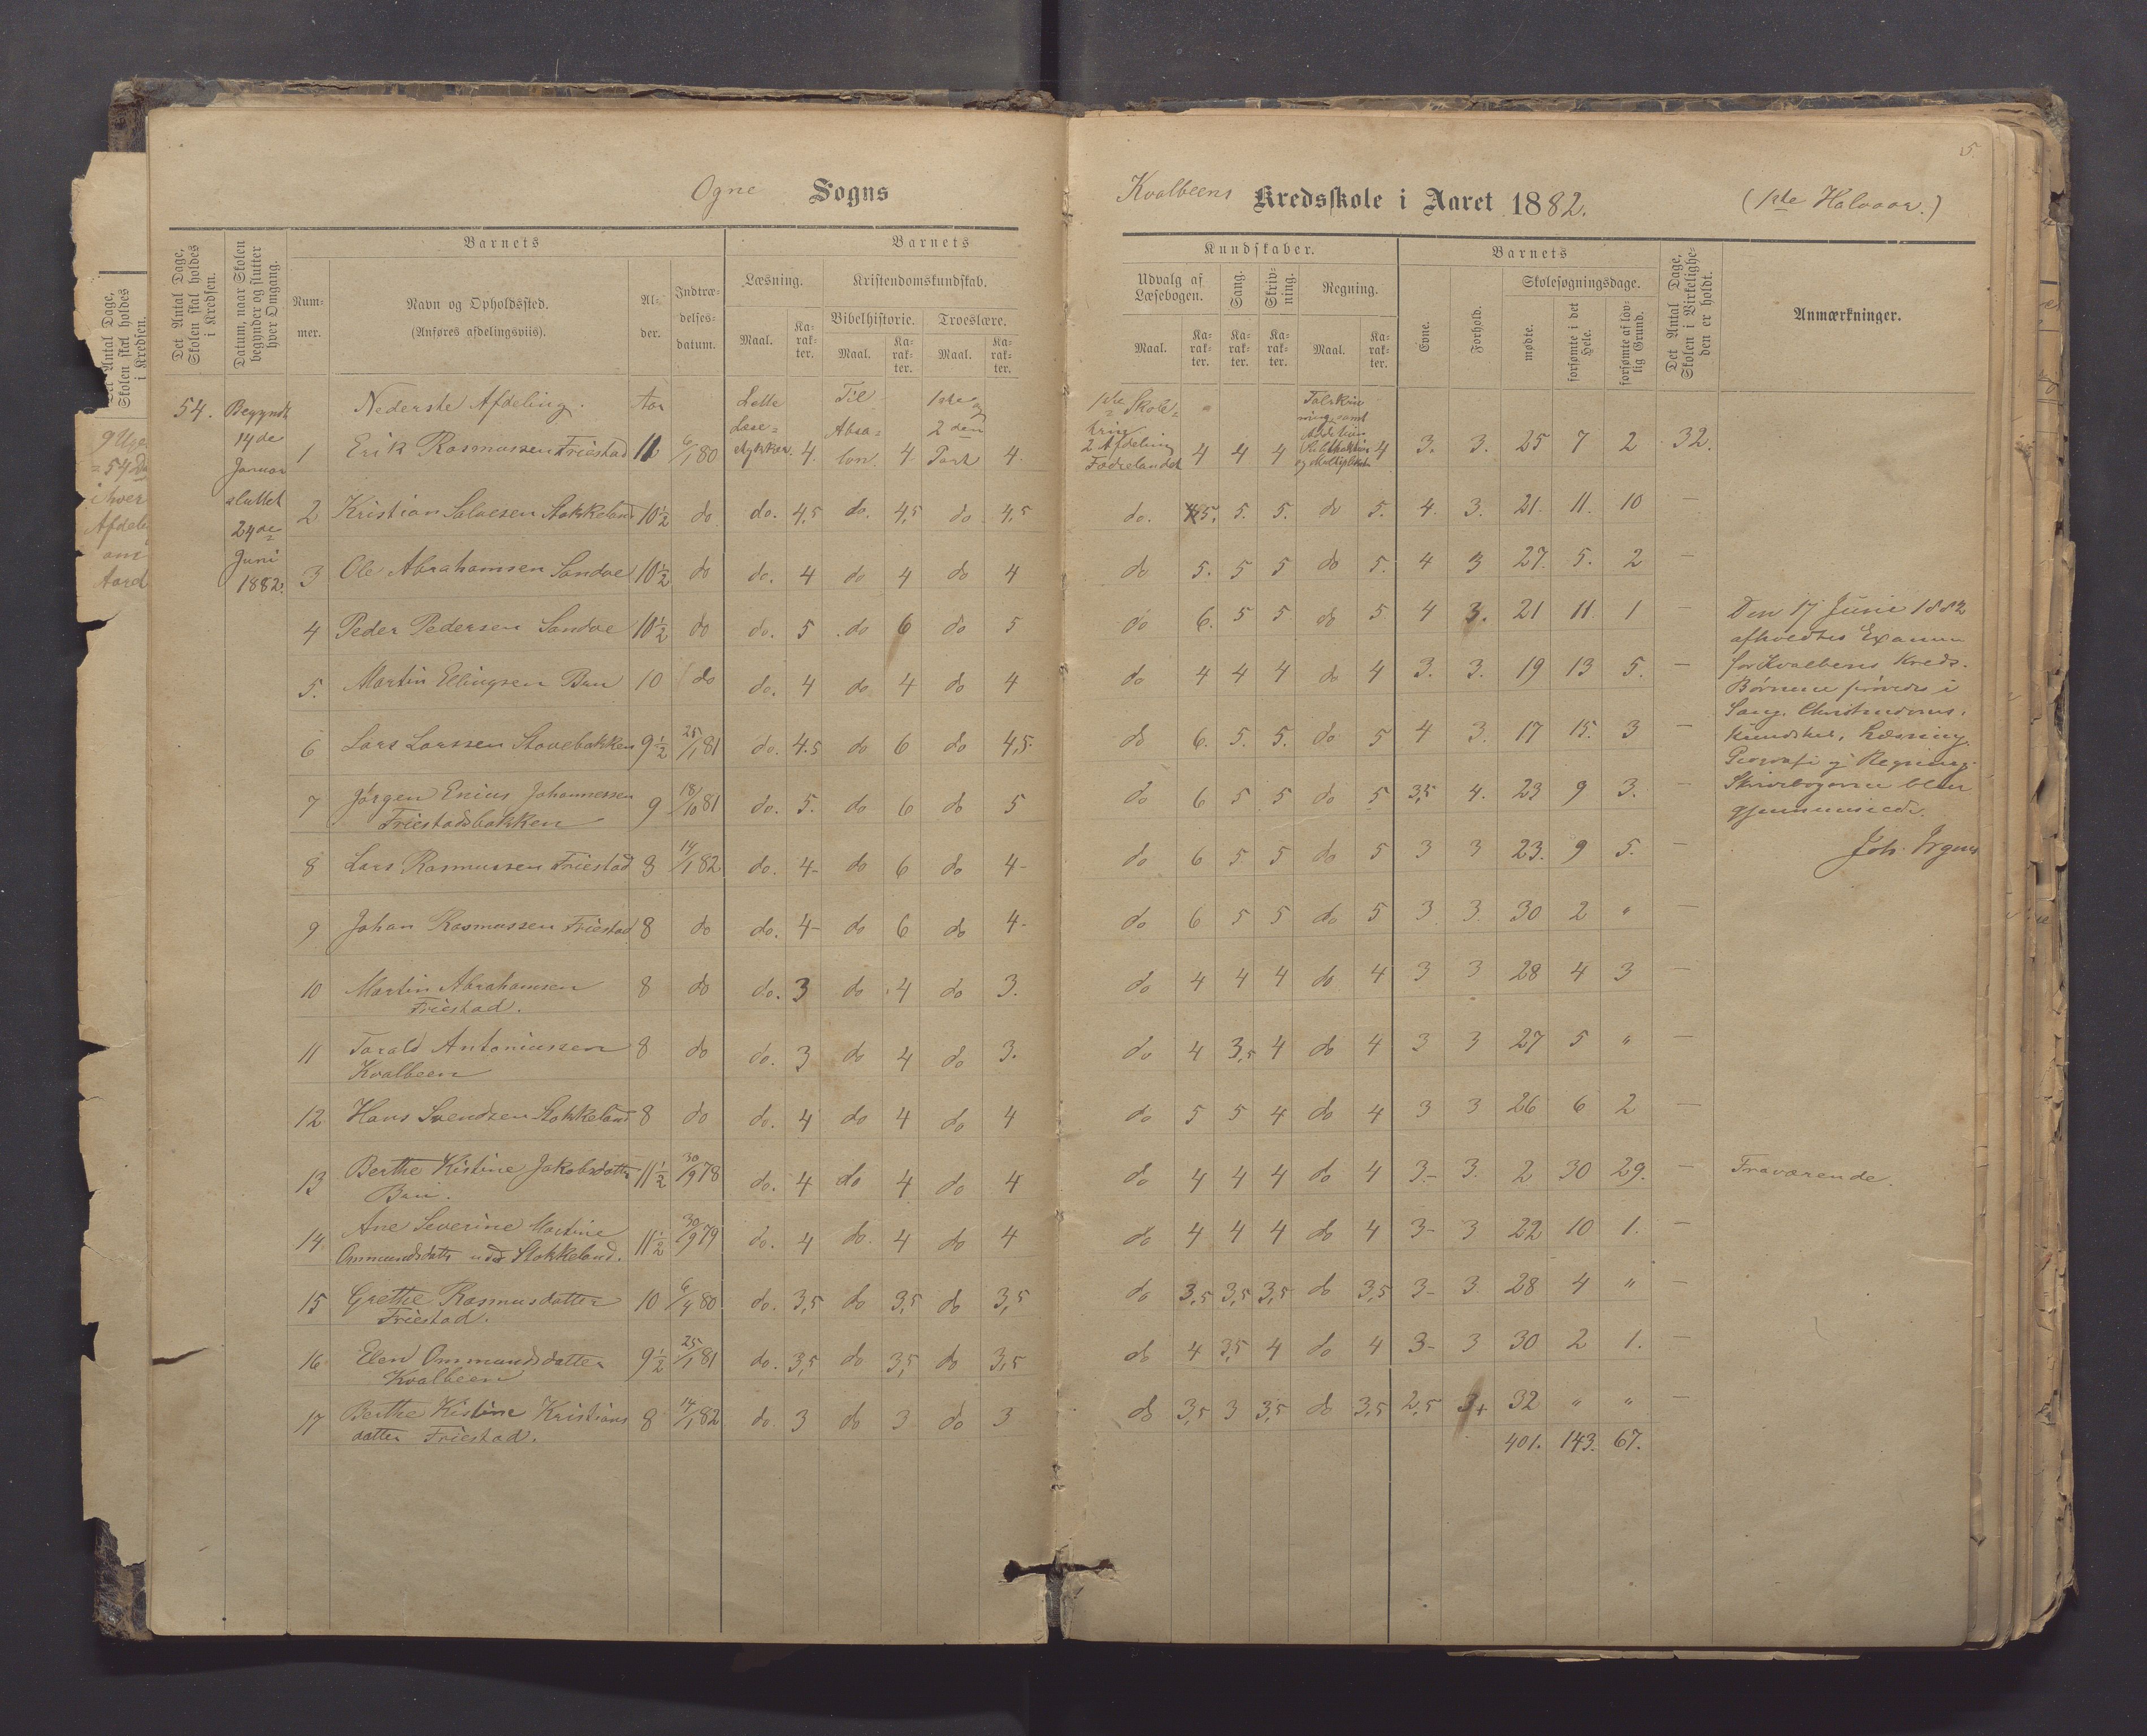 5
Ogne Sogns Kvalbeens Kredsskole i Aaret 1882. (1ste Halvaar.)
Det Antal Dage, Skolen skal holdes i Kredsen.
Datum, naar Skolen begynder og slutter hver Omgang.
Barnets
Num-mer.
Navn og Opholdssted.
(Anføres afdelingsviis).
Al-der.
Indtræ-delses-datum.
Barnets Kundskaber.
Læsning.
Kristendomskundskab.
Bibelhistorie.
Troeslære.
Maal. Ka-rak-ter. Maal. Ka-rak-ter. Maal. Ka-rak-ter.
Udvalg af Læsebogen.
Sang.
Skriv-ning.
Regning.
Maal. Ka-rak-ter. Ka-rak-ter. Ka-rak-ter. Maal. Ka-rak-ter.
Barnets
Evne.
Forhold.
Skolesøgningsdage.
mødte.
forsømte i det Hele.
forsømte af lov-lig Grund.
Det Antal Dage, Skolen i Virkelighe-den er holdt.
Anmærkninger.
54. Begyndt
14de
Januar
sluttet
24de
Juni
1882.
Nederste Afdeling. Aar
Lette Læse-stykker
Til Absa-lon
1ste og 2den Part
1ste Skole-
2 Afdeling
Fædrelandet
1 Erik Rasmussen Friestad 11 6/1 80 4. 4 4. 4 4 4 4 3. 3. 25 7 2 32.
2 Kristian Salvesen Stokkeland 10½ do do. 4,5 do. 4,5 do 4,5 do. 5. 5. 5. do 5. 4. 3. 21. 11. 10 —
3 Ole Abrahamsen Sandve 10½ do do. 4 do 4 do 4 do 5. 5 5 do 5. 4 3 27. 5. 2 —
4 Peder Pedersen Sandve 10½ do do. 5 do 6 do 5 do 6. 5 5 do 5 4 3. 21 11 1 —
5. Martin Ellingsen Bru 10 do do. 4 do 4 do 4 do 4 4 4 do 4 3. 3. 19 13 5. —
6 Lars Larssen Stavebakken 9½ 25/1 81 do. 4.5 do 6 do 4,5. do 6. 5. 5. do 5 4 3. 17 15. 3 —
7 Jørgen Enius Johannessen
Friestadbakken 9 18/10 81 do. 5. do 6 do 5 do 6 5 5 do 5 3,5 4. 23 9 3. —
8 Lars Rasmussen Friestad 8 14/1 82 do. 4- do 6 do 4- do 6 5 5 do 5 3 3 23. 9 5. —
9 Johan Rasmussen Friestad 8 do do. 4- do 6 do 4- do 6 5 5 do 5 3 3. 30 2 " —
10 Martin Abrahamsen
Friestad. 8 do do. 3 do 4 do 3. do 4 4 4 do 4 3 3 28 4 3 —
11 Torald Antoniussen
Kvalbeen 8 do do. 3 do 4 do 3. do 4 3,5 4 do 4 3 3 27 5 " —
12 Hans Svendsen Stokkeland 8 do do. 4 do 4 do 4 do 5 5 4 do 4 3 3 26 6 2 —
13 Berthe Kistine Jakobsdatter
Bru. 11½ 30/9 78 do. 4 do 4 do 4 do 4 4 4 do 4 3- 3. 2 30 29. — Fraværende.
14 Ane Severine Martine
Ommundsdatter Stokkeland. 11½ 30/9 79 do. 4 do. 4 do 4 do 4 4 4 do 4 3- 3 22 10 1. —
15 Grethe Rasmusdatter
Friestad. 10 6/4 80 do. 3,5 do 3,5 do 3,5 do 3,5 3,5 3,5 do 3,5 3- 3 28 4 " —
16 Elen Ommundsdatter
Kvalbeen 9½ 25/1 81 do. 3,5 do 3,5 do 3,5 do 4 3,5 4 do 4 3- 3 30 2 1. —
17 Berthe Kistine Kristians
datter Friestad. 8 14/1 82 do 3 do 3 do 3 do 3,5 3 3,5 do 3,5 2,5 3+ 32 " " —
401. 143. 67.
Den 17 Juni 1882
afholdtes Examen
for Kvalbens Kreds.
Børnene prøvedes i
Sang, Christendoms-
kundskab, Læsning,
Geografi og Regning.
Skrivebøgerne blev
gjennemseede.